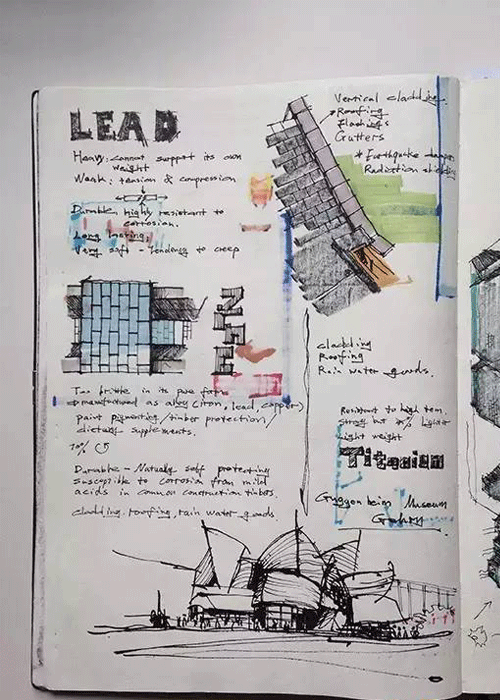 LEAD
Heavy: cannot support its own
weight
Weak: tension & compression
Durable highly resistant to
corrosion.
Long lasting.
Very soft - tendency to creep
Vertical cladding
Roofing
Flashings
Gutters
* Earthquake damper
Radiation shielding
ZINC
Too brittle in its pure form
manufactured as alloy (iron, lead, copper)
paint pigmenting / timber protection/
dietary supplements.
70%
Durable - Natually self protecting
susceptible to corrosia from mild
acids in common construction timbers.
cladding, roofing, rain water goods.
cladding
Roofing
Rain water goods.
Resistant to high tem.
strong but lighter
Light weight
Titanium
Guggenheim Museum
Gehry